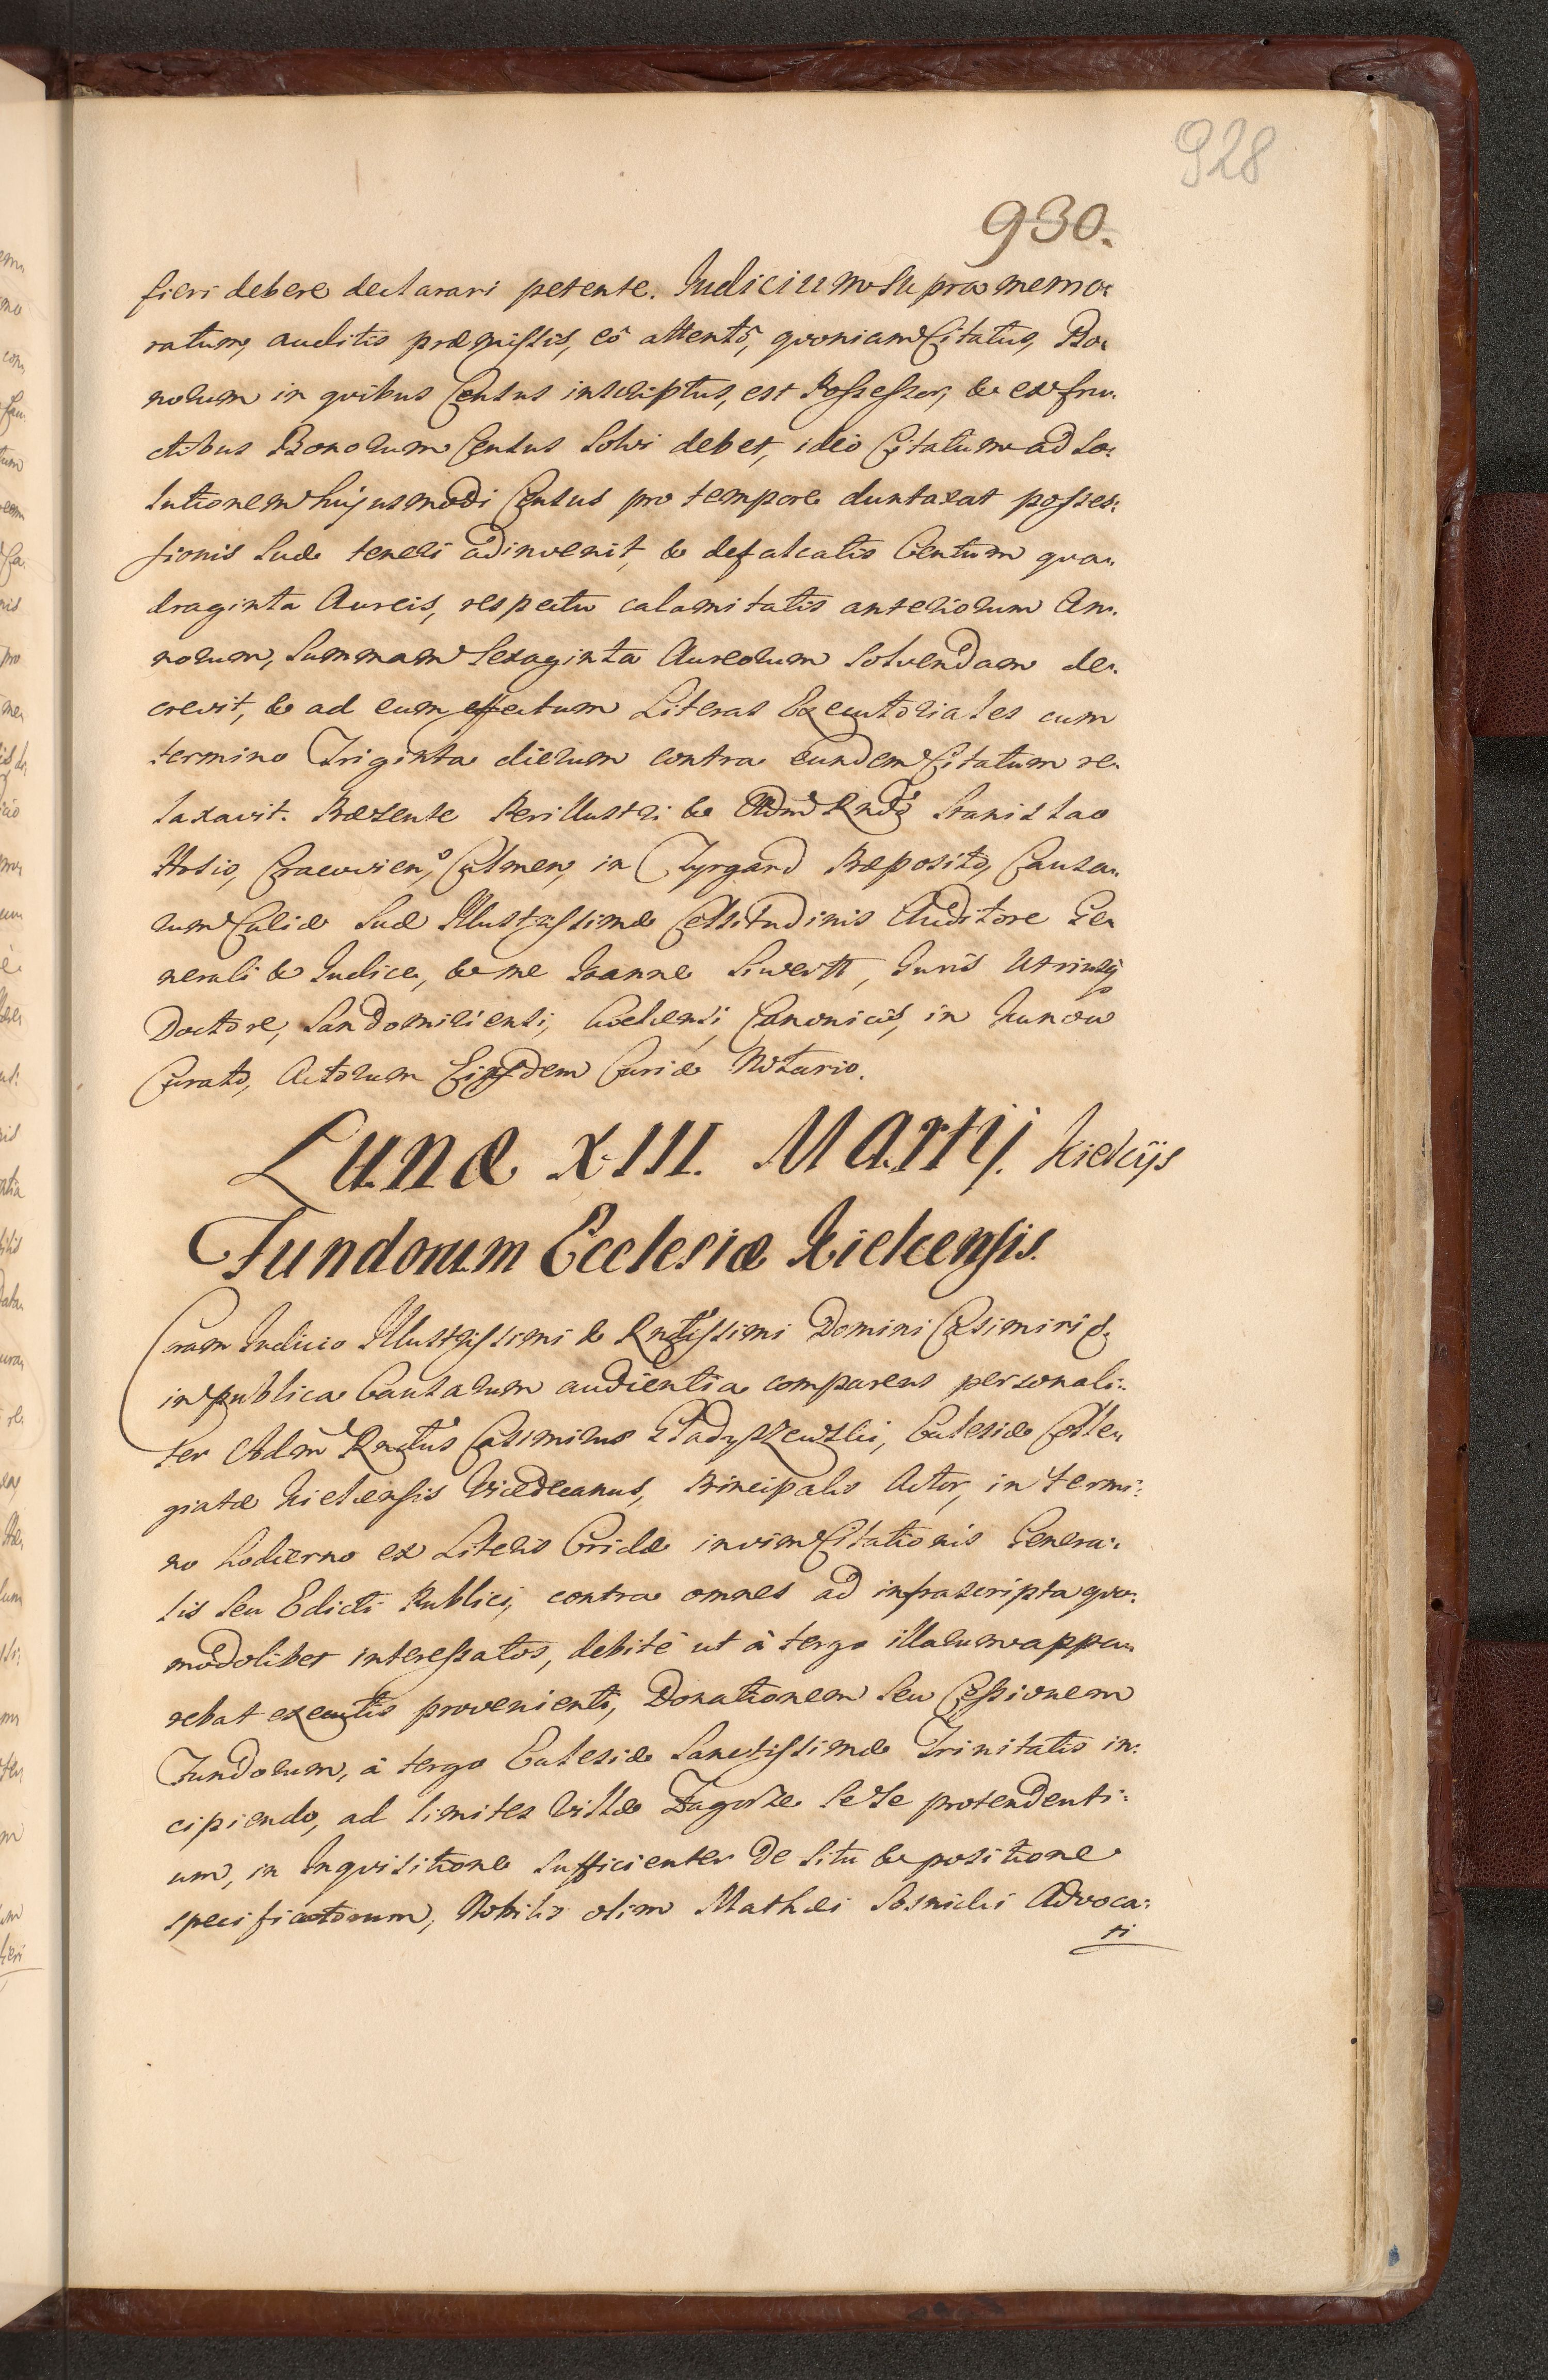 928
930.
fieri debere declarari petente. Judicium supra memo:
ratum, auditis præmissis, eô attentô, quoniam Citatus, Bo:
norum in quibus Census inscriptus, est Possessor, & ex fru:
ctibus Bonorum Census solvi debet, ideò Citatum ad so:
lutionem hujusmodi Census pro tempore duntaxat posses:
sionis suæ teneri adinvenit, & defalcatis Centum qua:
draginta Aureis, respectu calamitatis anteriorum An:
norum, summam Sexaginta Aureorum solvendam de:
crevit, & ad eum effectum Literas Executoriales cum
termino Triginta dierum contra eundem Citatum re:
laxavit. Præsente Perillustri & Adm Rndo Stanislao
Hosio, Cracovien, Culmen, in Præposito, Causa:
rum Curiæ Suæ Illustrissimæ Celsitudinis Auditore Ge:
nerali & Judice, & me Joanne Siwertt, Juris Utriusq
Doctore, Sandomiriensi, Kielcensi Canonico, in Kunow
Curato, Actorum Ejusdem Curiæ Notario.
Lunæ XIII. Martij. Kielcijs
Fundorum Ecclesiæ Kielcensis.
Coram Judicio Illustrissimi & Rndissimi Domini Casimiri &
in publica Causarum audientia comparens personali:
ter Adm Rndus Casimirus Gładyszewski, Ecclesiæ Colle:
giatæ Kielcensis Vicedecanus, Principalis Actor, in termi:
no hodierno ex Literis Cridæ in vim Citationis Genera:
lis seu Edicti Publici, contra omnes ad infrascripta quo:
modolibet interessatos, debitè ut à tergo illarum appa:
rebat executis provenienti, Donationem seu Cessionem
Fundorum, à tergo Ecclesiæ Sanctissimæ Trinitatis in:
cipiendo, ad limites Villæ Zagorze sese protendenti:
um, in Inquisitione sufficienter de situ & positione
specificatorum, Nobilis olim Mathæi Sosnicki Advoca:
ti